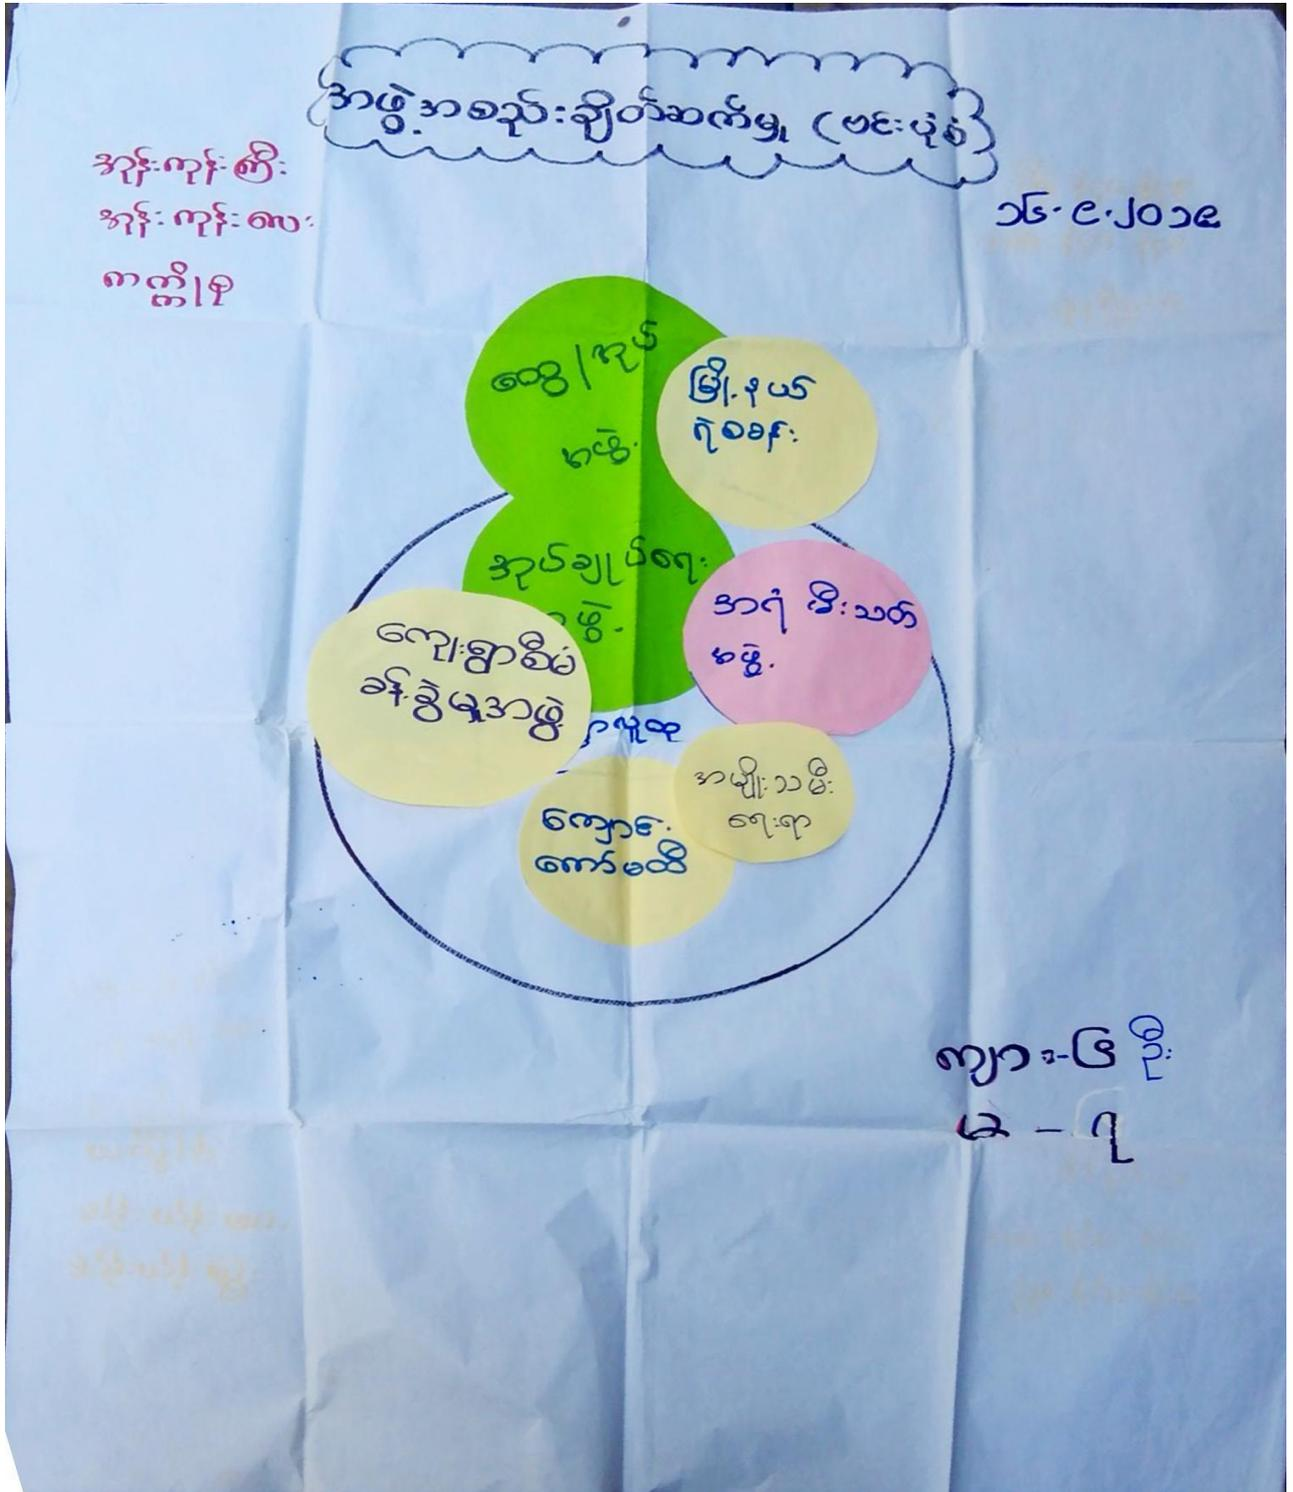 အဖွဲ့အစည်းချိတ်ဆက်မှု (ဗင်းပုံစံ)
အုန်းကုန်းကြီး
အုန်းကုန်းလေး
ကက္ကိုစု
၁၆.၉.၂၀၁၉
ထွေ/အုပ်
အဖွဲ့
မြို့နယ်
ရဲစခန်း
အုပ်ချုပ်ရေး
ဖွဲ့
အရံ မီးသတ်
အဖွဲ့
ကျေးရွာစီမံ
ခန့်ခွဲမှုအဖွဲ့
ာလူထု
အမျိုးသမီး
ရေးရာ
ကျောင်း
ကော်မတီ
ကျား-၆ ဦး
မ - ၇